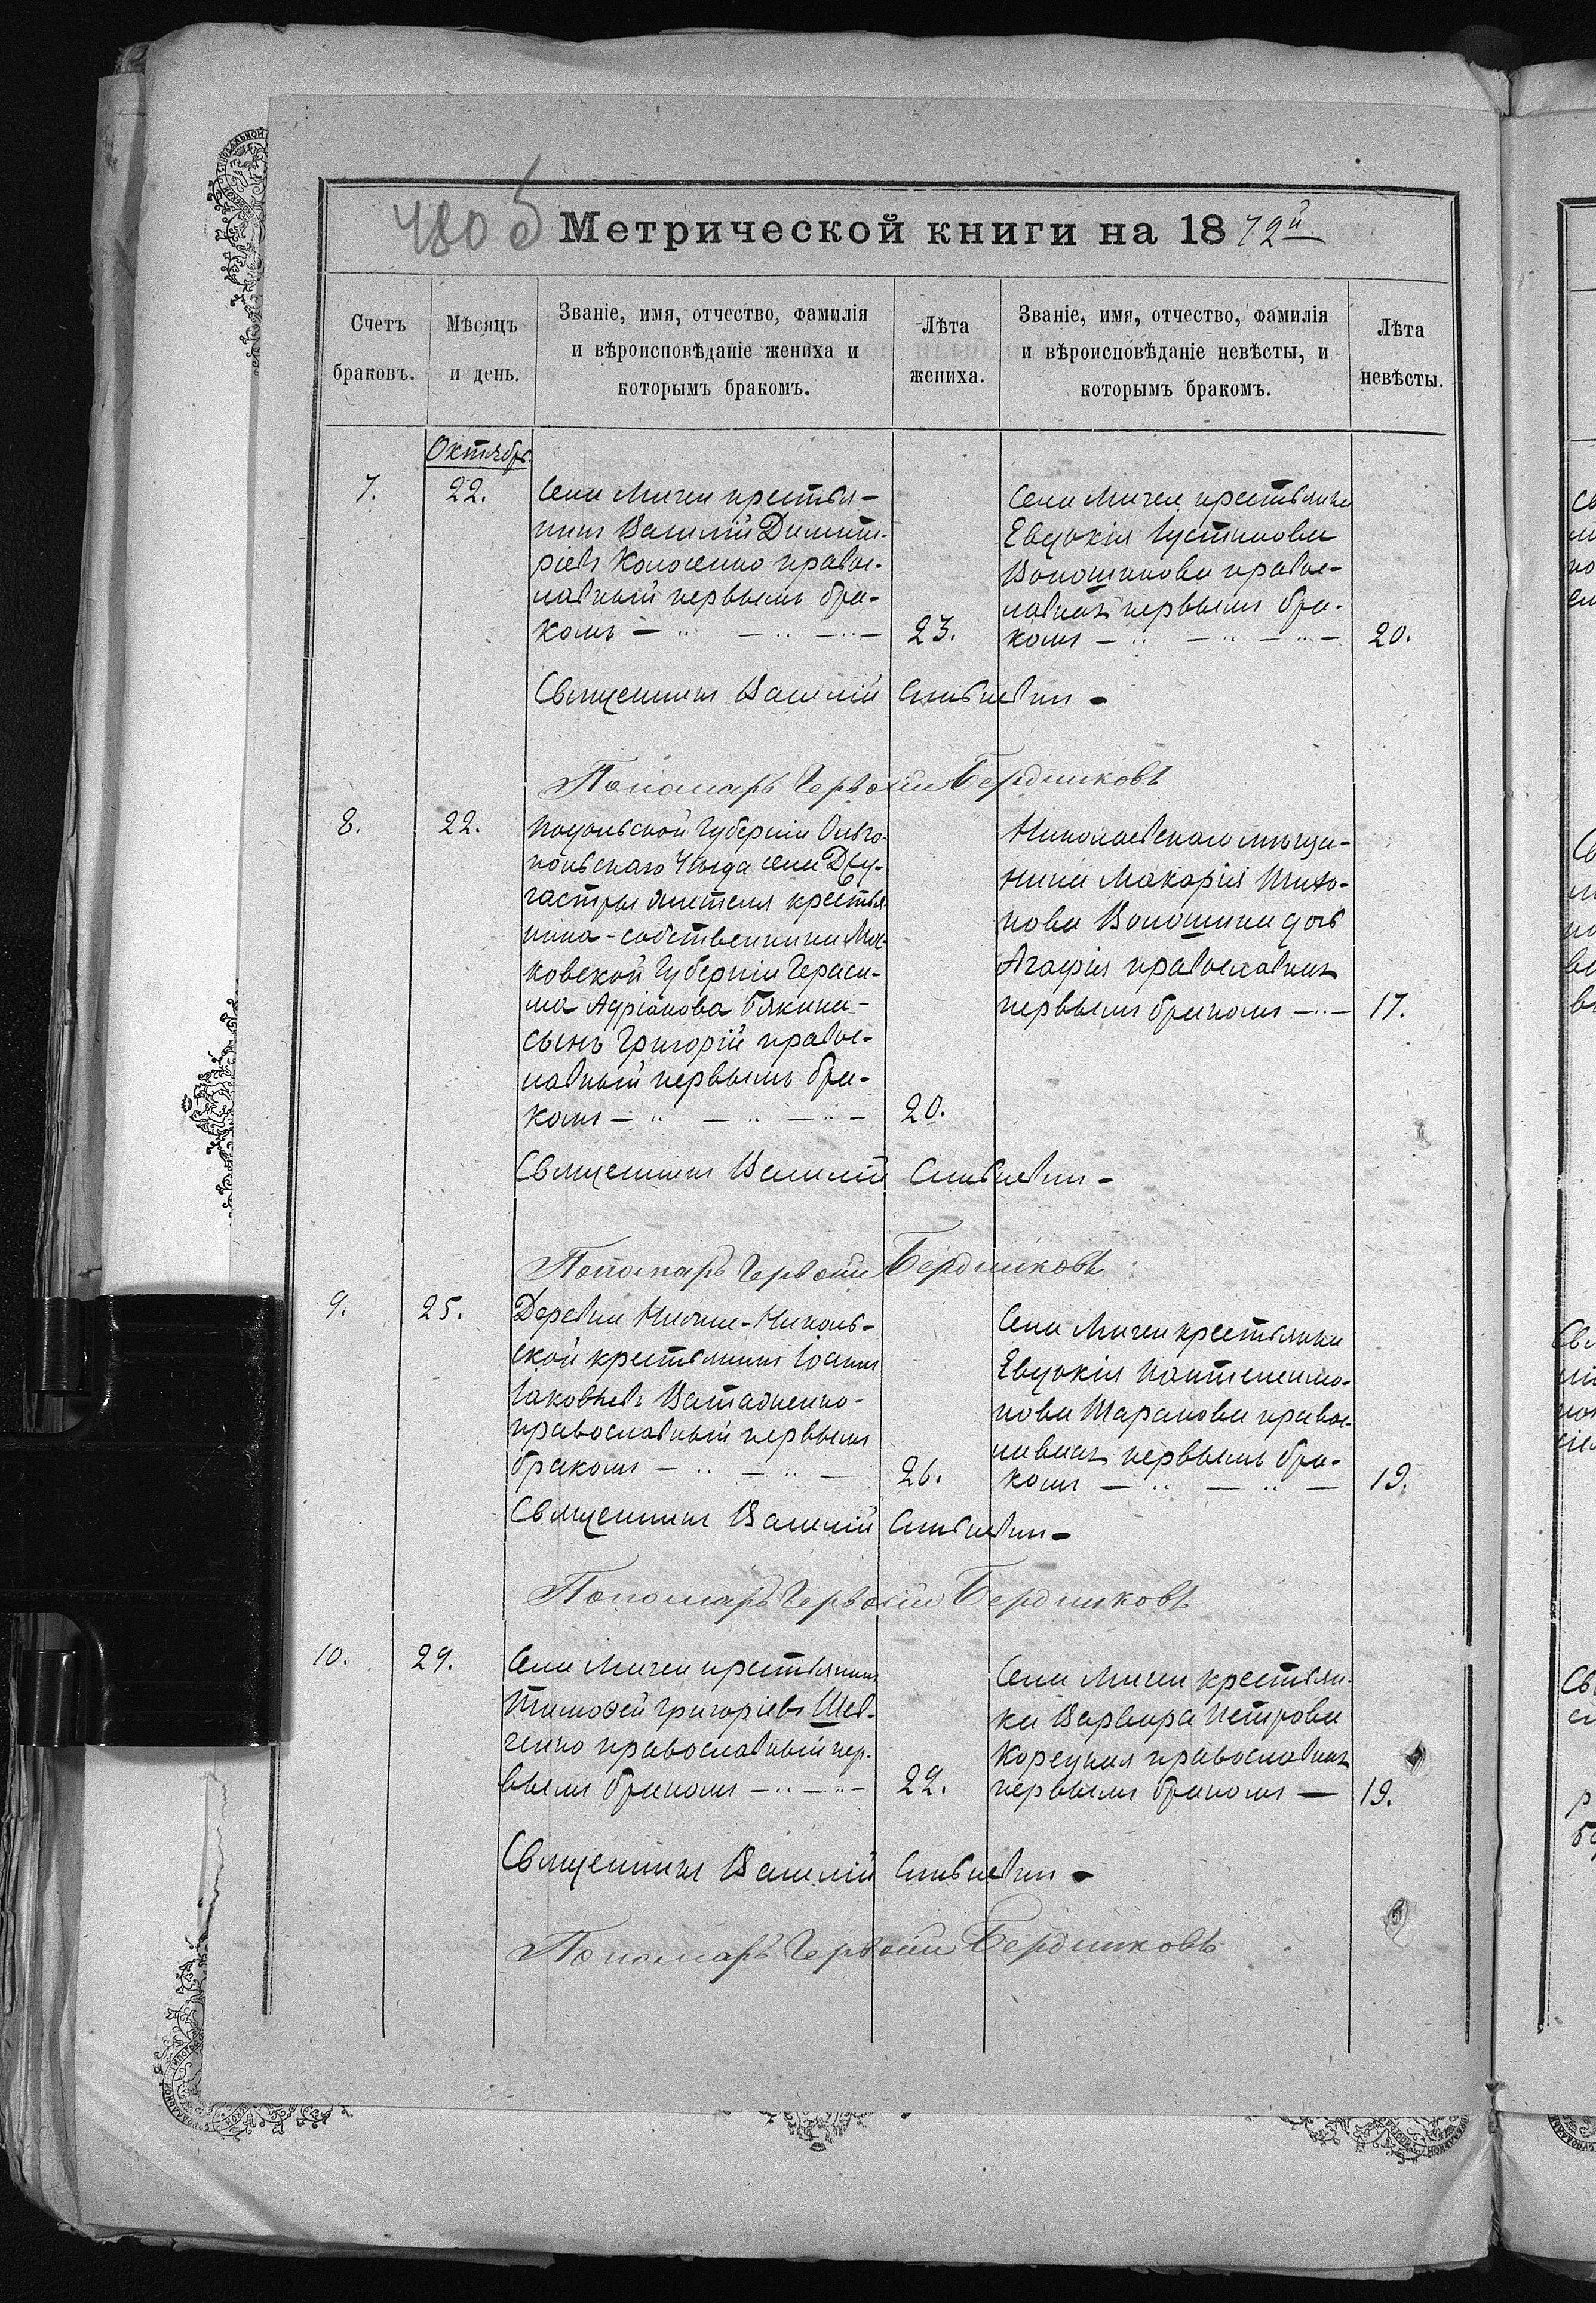 480 об
Метрической книги на 1879й
Счетъ браковъ.
Мѣсяцъ и день.
Званіе, имя, отчество, фамилія
и вѣроисповѣданіе жениха и
которымъ бракомъ.
Лѣта жениха.
Званіе, имя, отчество, фамилія
и вѣроисповѣданіе невѣсты, и
которымъ бракомъ.
Лѣта невѣсты.
Октябрь.
7.
22.
Села Мигеи крестья-
нинъ Василій Димит-
ріевъ Колосенко правос-
лавный первымъ бра-
комъ
23.
Села Мигеи крестьянка
Евдокія Іустинова
Волошинова правос-
лавная первымъ бра-
комъ
20.
Священникъ Василій
Пономарь Бердниковъ
8.
22.
Подольской Губерніи Ольго-
польскаго Уѣзда села
жителя крестья-
нина-собственника
ковской Губерніи Гераси-
ма Адріанова Бякина
сынъ Григорій правос-
лавный первымъ бра-
комъ
20.
Николаевскаго мѣща-
нина Макарія Тихо-
нова Волошина дочь
Агафія православная
первымъ бракомъ
17.
Священникъ Василій
Пономарь Бердниковъ
9.
25.
Деревни Нижне-Николь-
ской крестьянинъ Іоаннъ
Іаковлевъ Ватаженко
православный первымъ
бракомъ
26.
Села Мигеи крестьянка
Евдокія Пантелеимо-
нова Шарапова правос-
лавная первымъ бра-
комъ
19.
Священникъ Василій
Пономарь Бердниковъ
10.
29.
Села Мигеи крестьянинъ
Тимофей Григоріевъ Шев-
ченко православный пер-
вымъ бракомъ
22.
Села Мигеи крестьян-
ка Варвара Петрова
Корецкая православная
первымъ бракомъ
19.
Священникъ Василій
Пономарь Бердниковъ